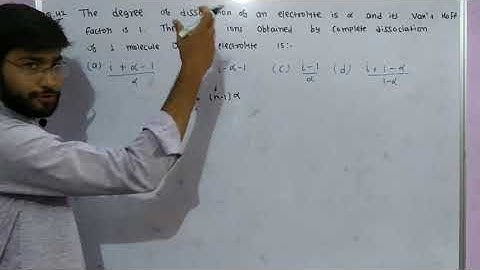 The degree of dissociation of an electrolyte is α and its Van't Hoff
factor is i. The ions obtained by complete dissociation
of 1 molecule electrolyte is:-
(a) i + α - 1 / α i - α - 1 (c) i - 1 / α (d) i + 1 - α / 1 - α
(n-1) α